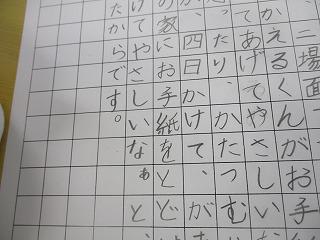 二場面
えるくんがお手
てあげてやさしい
ったり、かたつむ
、四日かけて、が
の家にお手紙をとど
けてやさしいなぁと、
たからです。